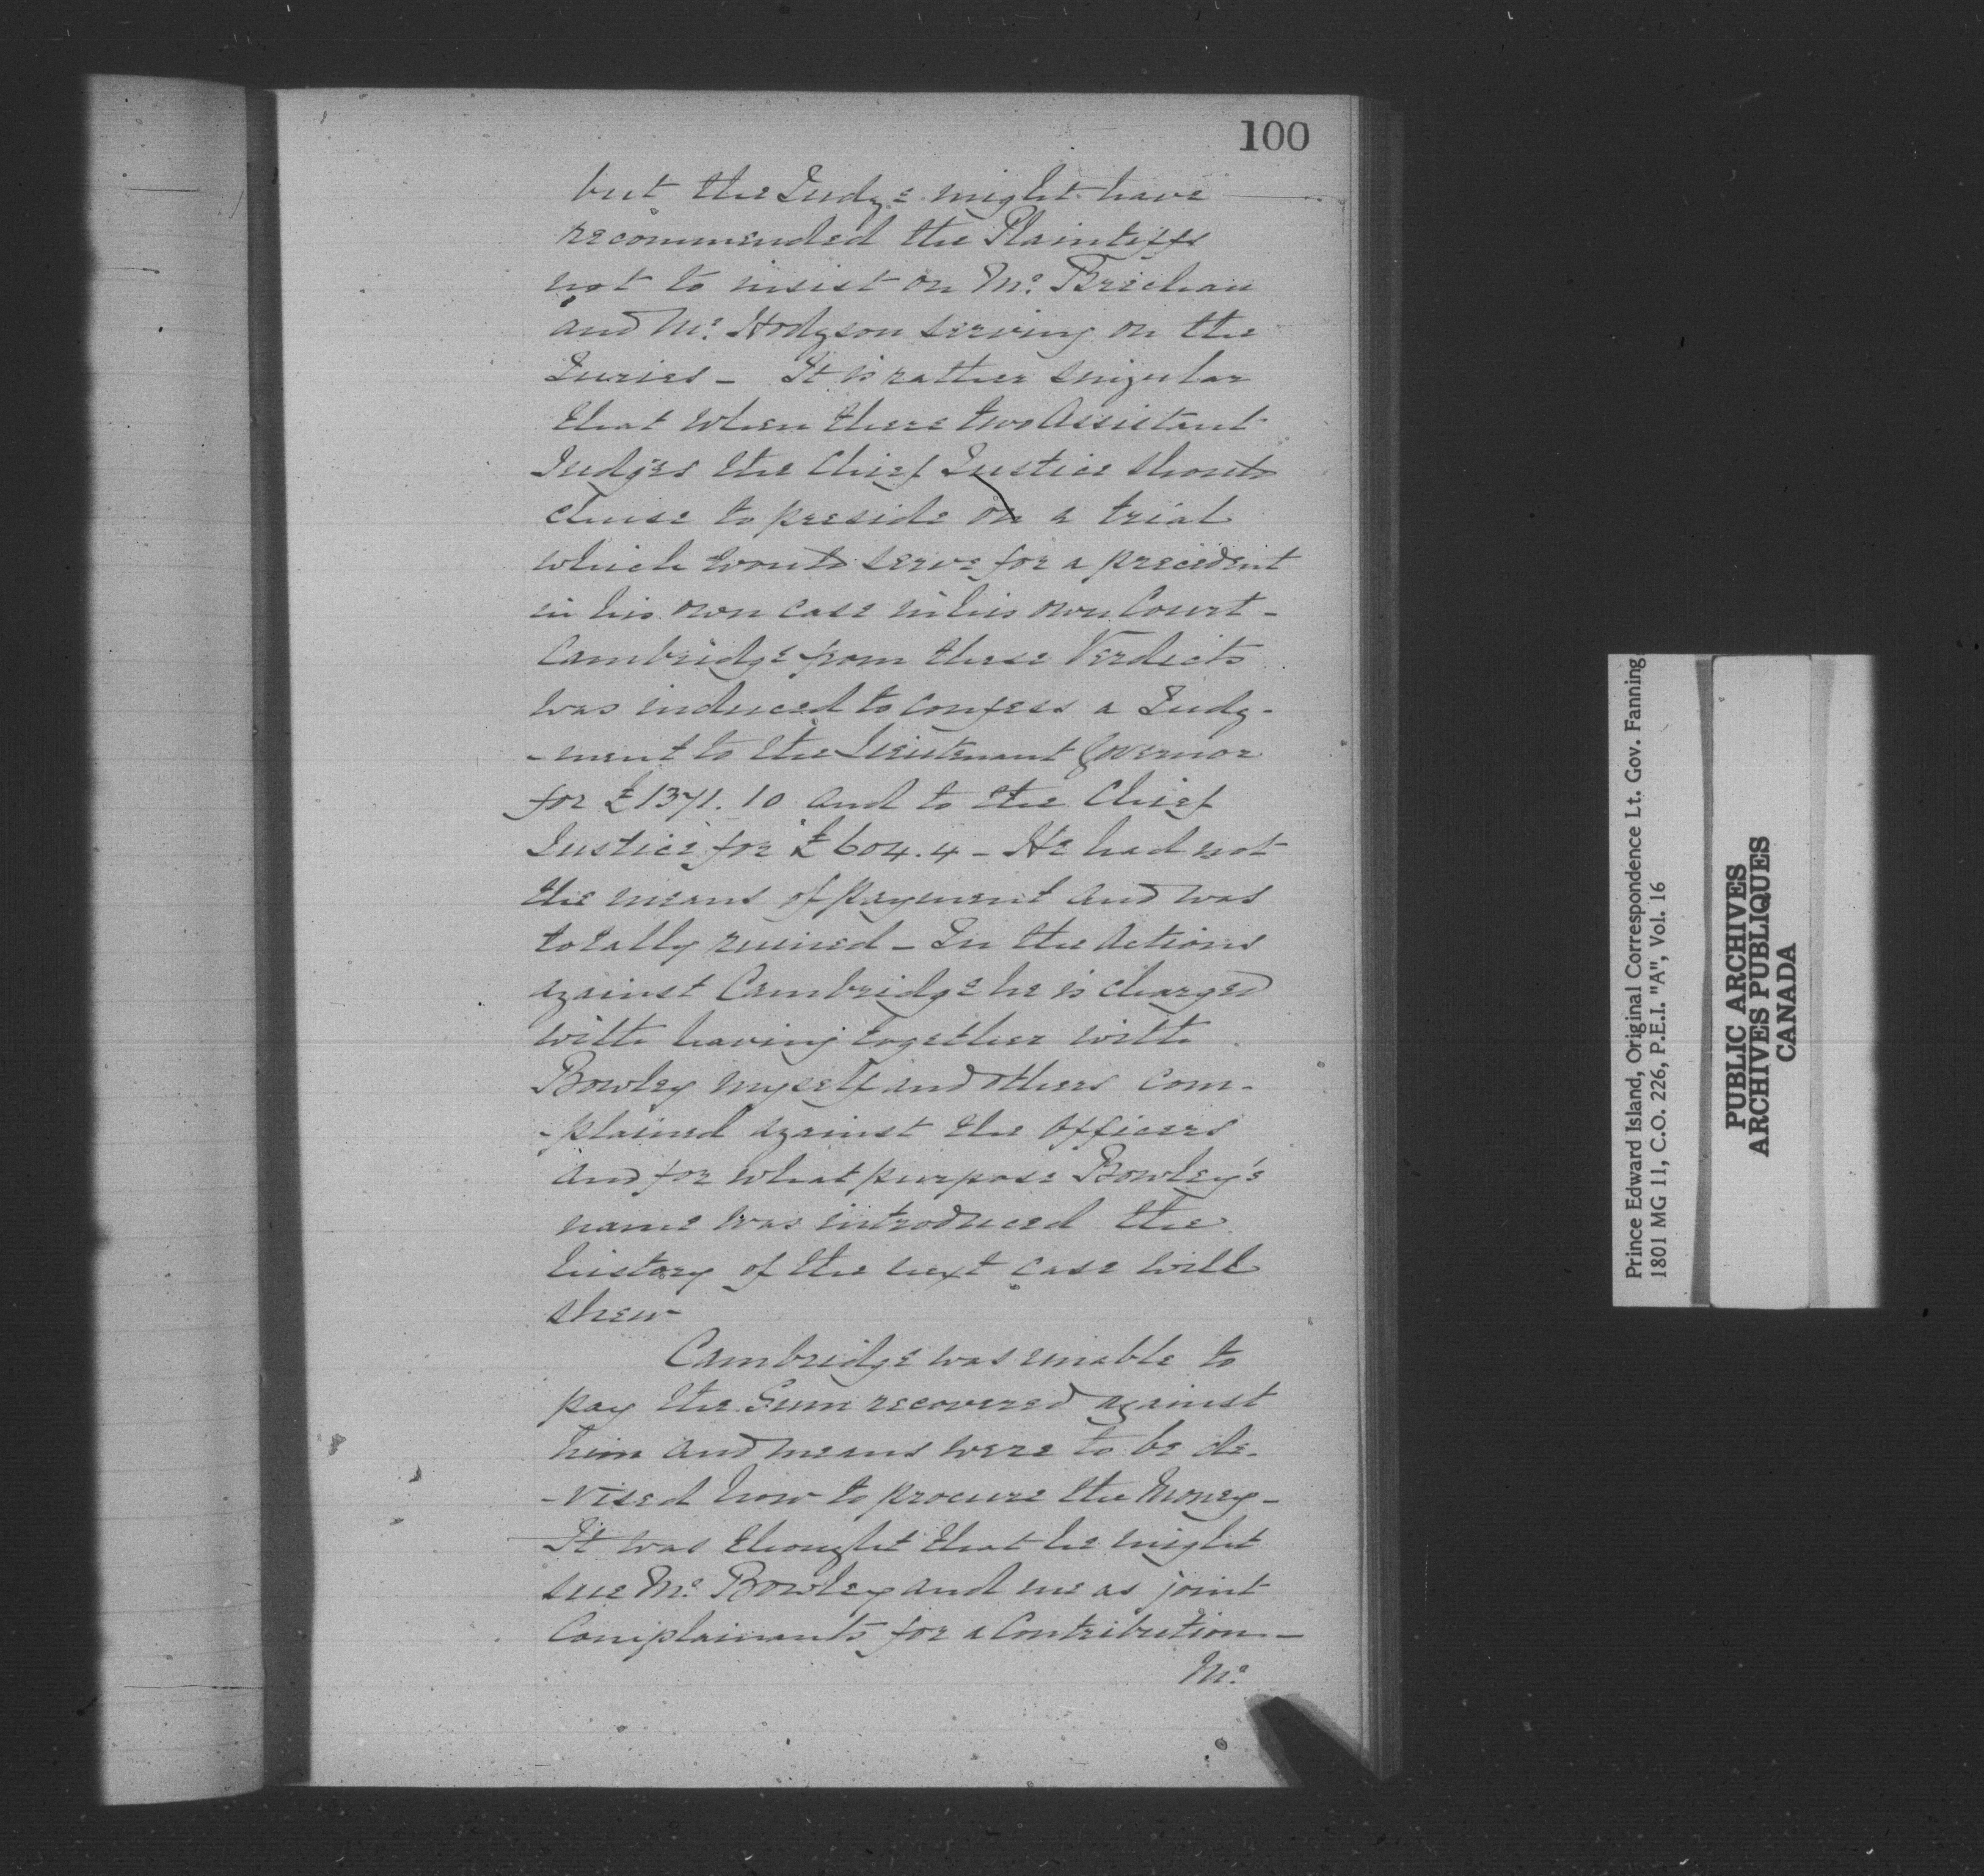 100
but the Judge might have
recommended the Plaintiffs
not to insist on Mr. Brecken
and Mr. Hodgson serving on the
Juries - It is rather singular
that when there two Assistant
Judges the Chief Justice should
chuse to preside on a trial
which would serve for a precedent
in his own case in his own Court -
Cambridge from these Verdicts
was induced to confess a Judg-
-ment to the Lieutenant Governor
for £1371.10 and to the Chief
Justice for £604.4 - He had not
the means of payment and was
totally ruined - In the Actions
against Cambridge he is charged
with having together with
Bowley myself and others com-
-plained against the officers
and for what purpose Bowley's
name was introduced the
history of the next case will
shew -
Cambridge was unable to
pay the Sum recovered against
him and means were to be de-
-vised how to procure the Money -
It was thought that he might
sue Mr. Bowley and me as joint
Complainants for a Contribution -
Mr.
Prince Edward Island, Original Correspondence Lt. Gov. Fanning
1801 MG 11, C.O. 226, P.E.I. "A", Vol. 16
PUBLIC ARCHIVES
ARCHIVES PUBLIQUES
CANADA